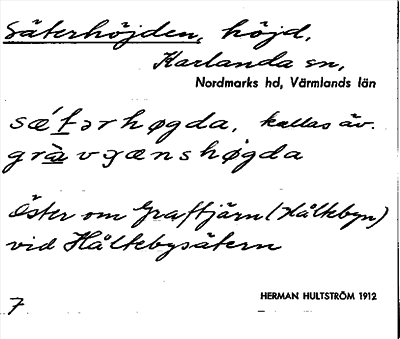 Säterhöjden, höjd,
Karlanda sn,
Nordmarks hd, Värmlands län
sǽtərhøgda, kallas äv.
gràvɡænshøgda
Öster om Graftjärn (Håltebyn)
vid Håltebysätern
7
HERMAN HULTSTRÖM 1912